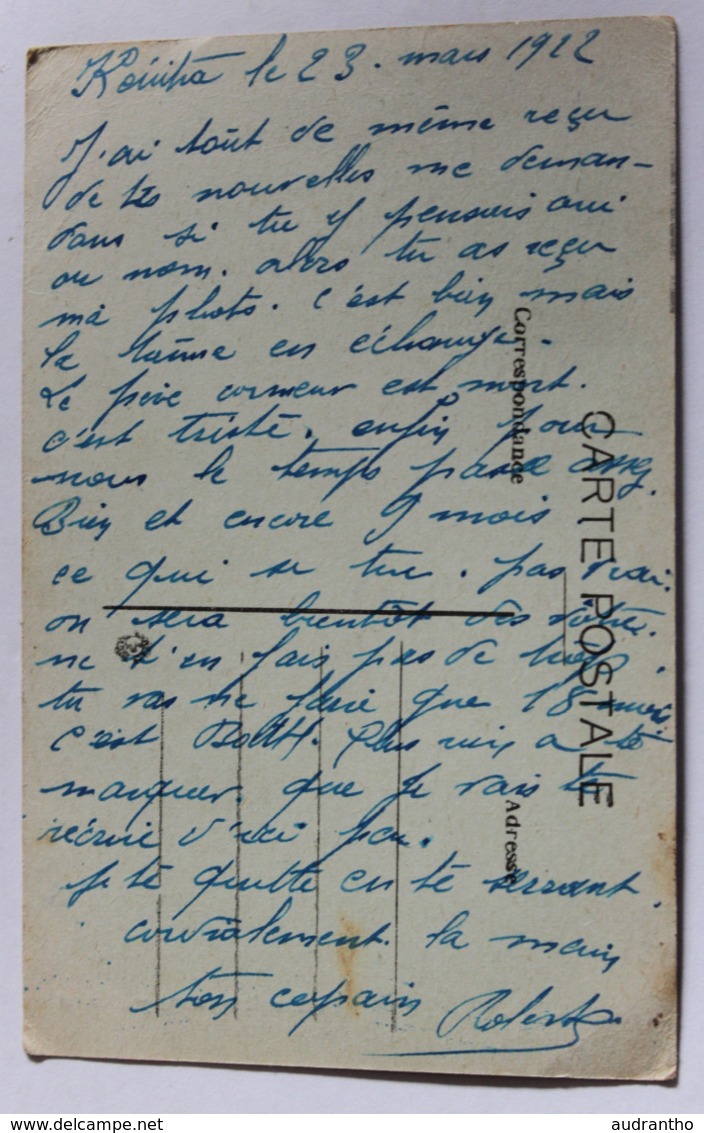 le 23. mars 1922
J'ai tout de même reçu
de tes nouvelles me deman-
dans si tu y pensais oui
ou nom. alors tu as reçu
ma photo. c'est bien mais
la tienne en échange.
Le père est mort.
c'est triste. enfin pour
nous le temps passe assez
Bien et encore 9 mois
ce qui se tire. pas vrai.
on sera bientôt des nôtres.
ne t'en fais pas de trop
tu vas ne faire que 18 mois.
c'est Plus rien a te
marquer. que je vais te
récrire d'ici peu.
je te quitte en te serrant
cordialement. la main
ton copain Robert
CARTE POSTALE
Correspondance
Adresse
www.delcampe.net
audrantho